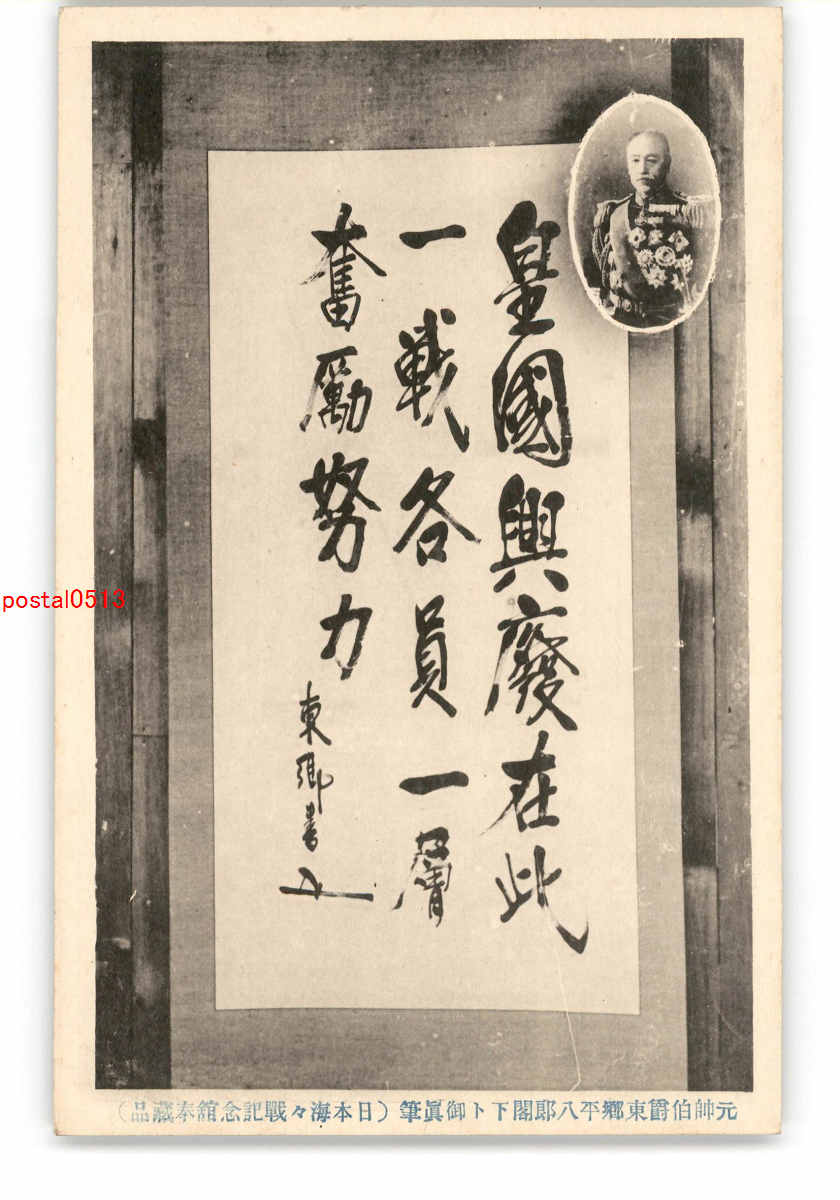 皇國興廢在此
一戰各員一層
奮勵努力
東郷書
元帥伯爵東鄕平八郎閣下ト御眞筆(日本海々戰記念館奉藏品)
postal0513